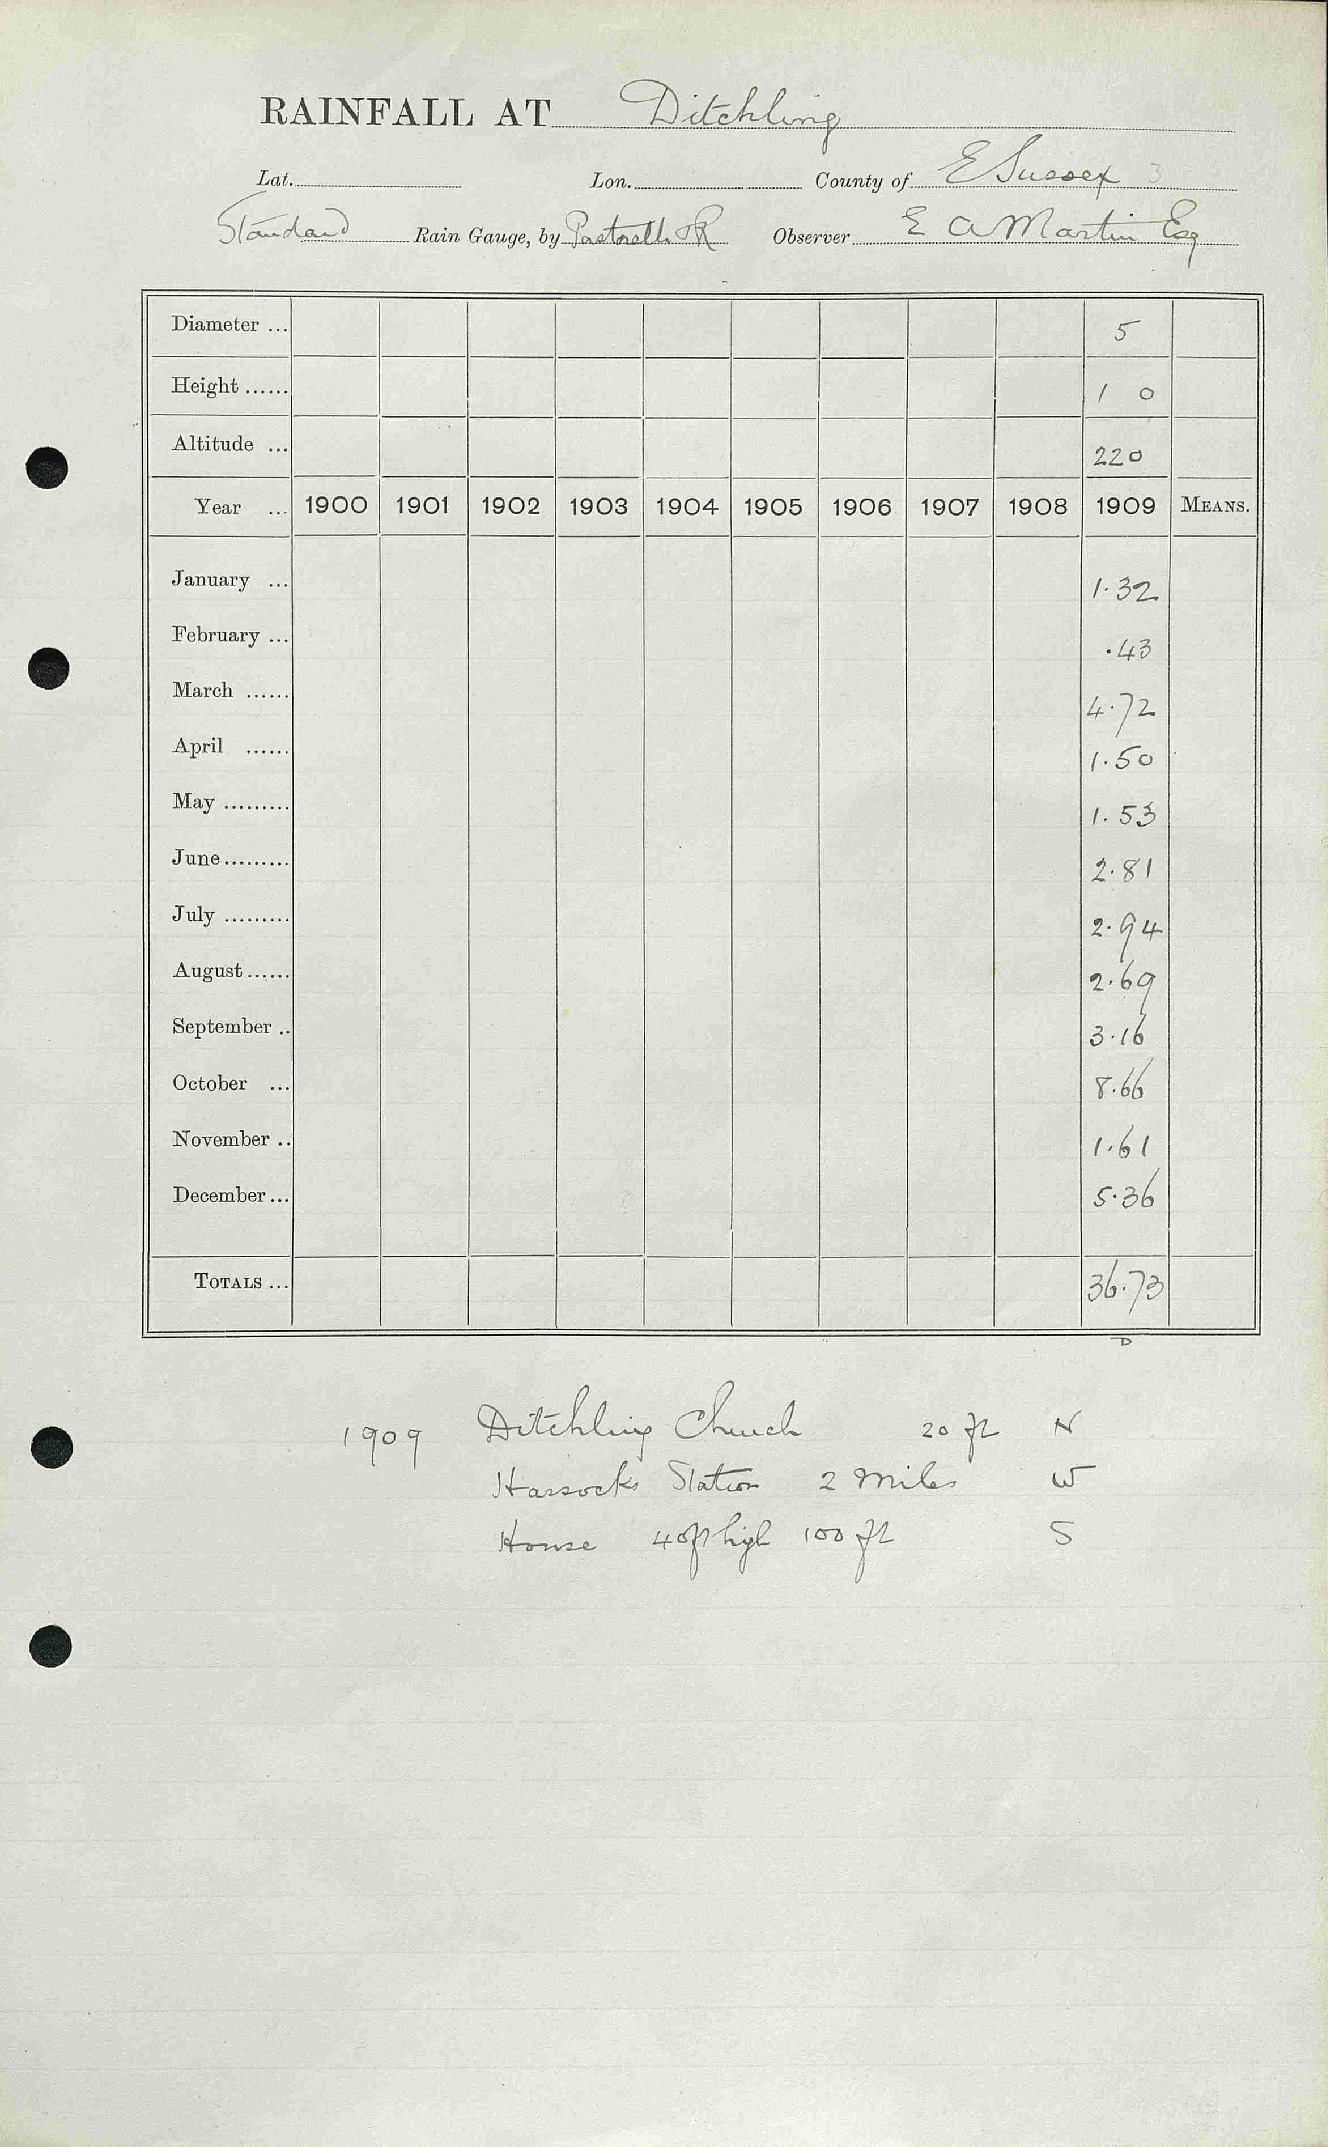 RAINFALL AT Ditchling
Lat. Lon. County of E Sussex
Standard Rain Gauge, by Pastorelli & R Observer E A Martin Esq
Diameter ... 5
Height ...... 1 0
Altitude ... 220
Year ... 1900 1901 1902 1903 1904 1905 1906 1907 1908 1909 MEANS.
January ... 1.32
February ... .43
March ...... 4.72
April ...... 1.50
May ......... 1.53
June ......... 2.81
July ......... 2.94
August ...... 2.69
September .. 3.16
October ... 8.66
November .. 1.61
December ... 5.36
TOTALS ... 36.73
D
1909 Ditchling Church 20 ft N
Hassocks Station 2 Miles W
House 40ft high 100 ft S